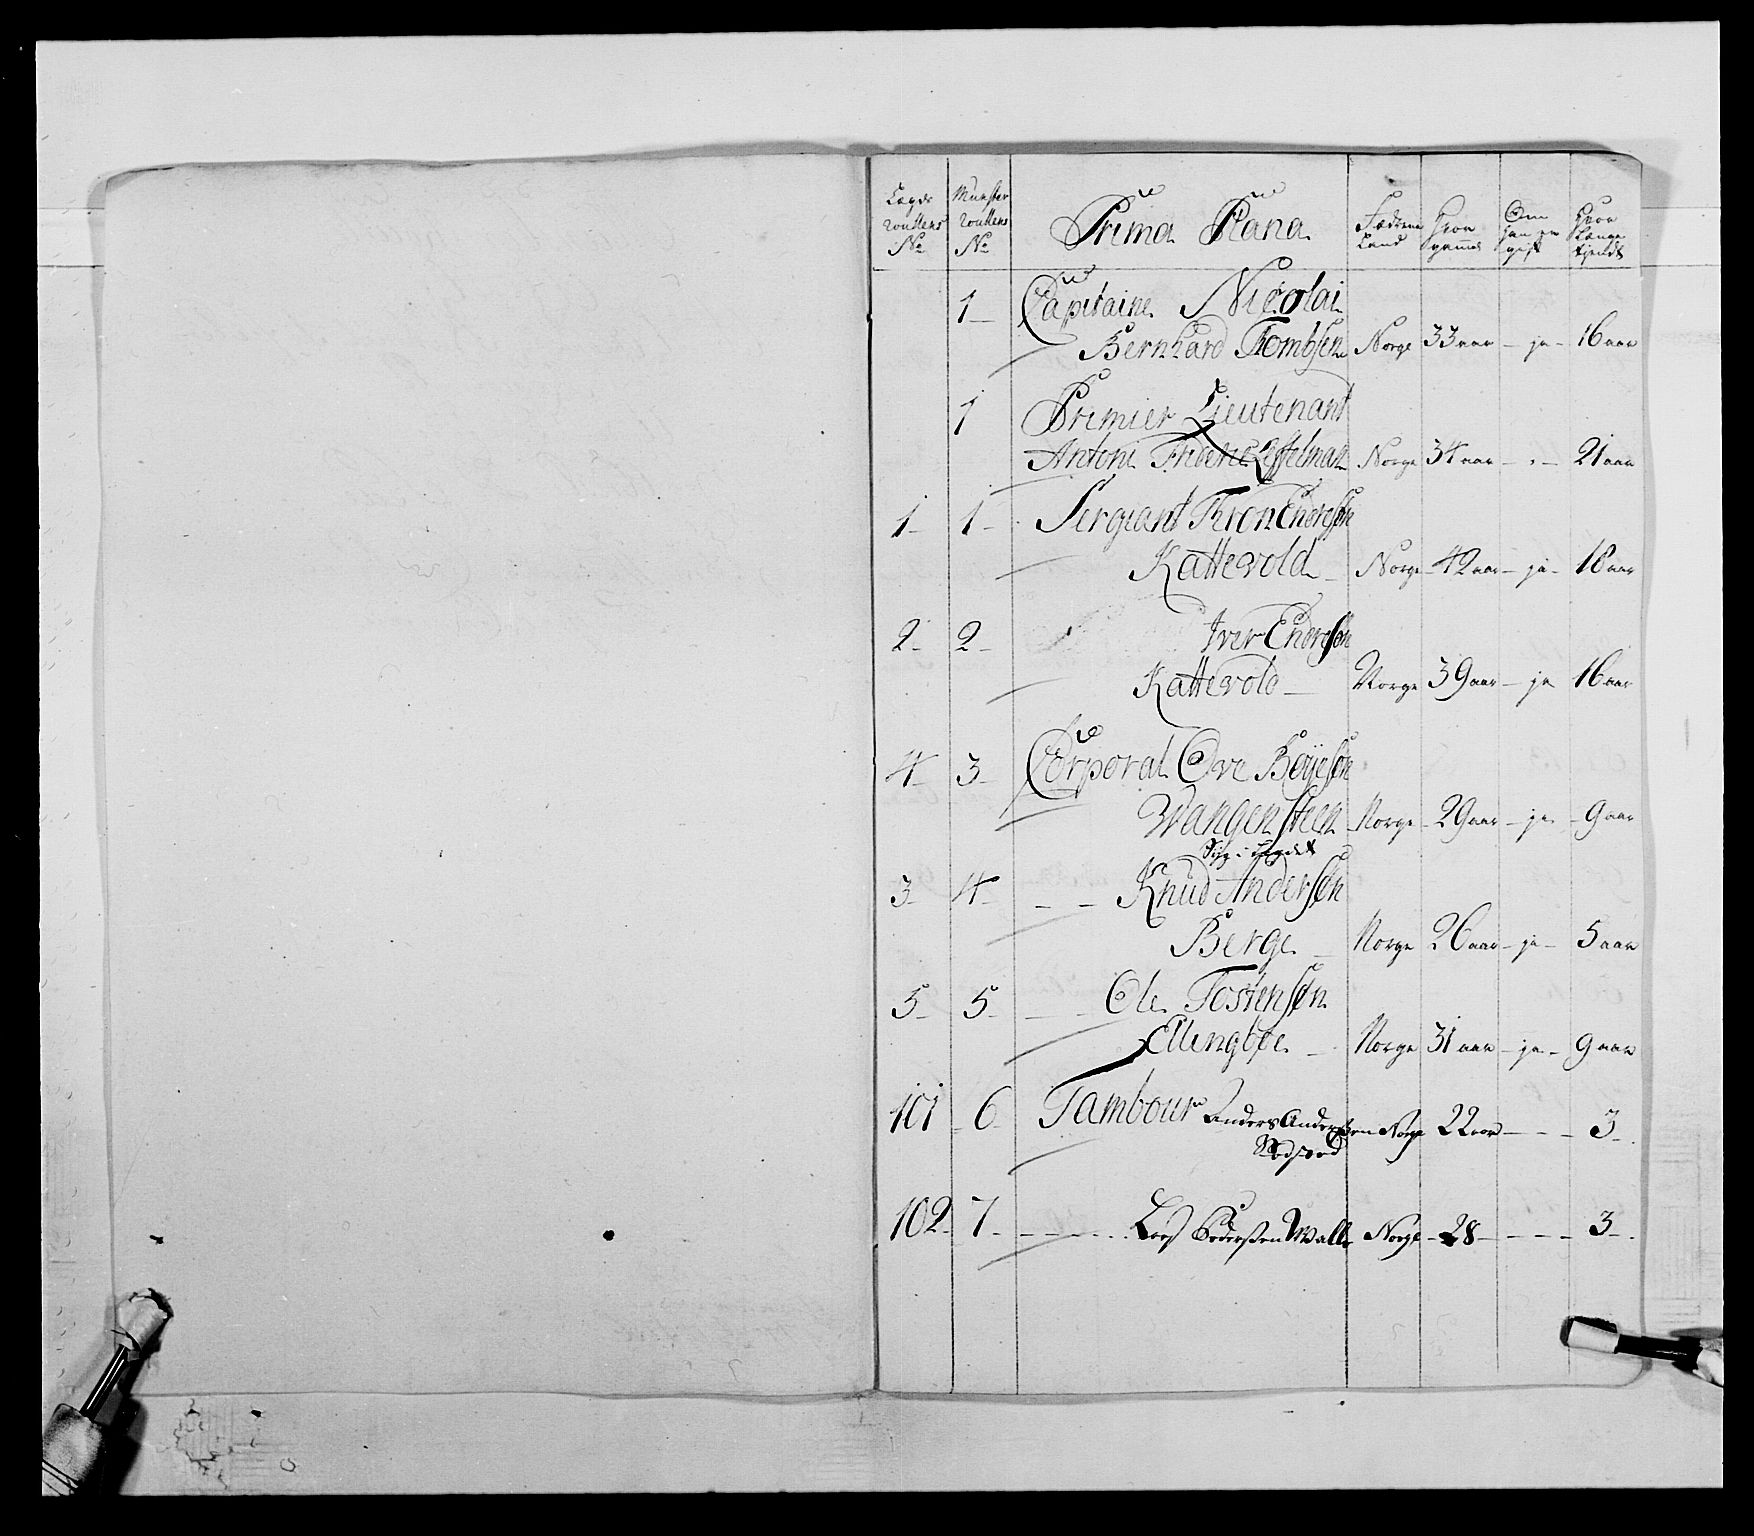 Legds Roullens No Munster Roullens No Prima Plana Fædrene Land Hvor gammel Om han er gift Hvor Længe tiendt
1 Capitaine Nicolai
Bernhard Trombsen Norge 33 aar - ja - 16 aar
1 Premier Lieutenant
Antoni Frideric Leffelman Norge 34 aar - - 21 aar
1 1 Sergiant Tron Endresøn
Kattevold Norge 42 aar - ja - 18 aar
2 2 Iver Endresøn
Kattevold Norge 39 aar - ja 16 aar
4 3 Corporal Ove Bøÿesøn
Wangensteen Norge 29 aar - ja - 9 aar
Syg i Legdet
3 4 - - Knud Andersøn
Berge Norge 26 aar - ja - 5 aar
5 5 - - Ole Tostensøn
Ellingbøe Norge 31 aar - ja - 9 aar
101 6 Tambour Anders Anderssen Norge 22 aar - - - 3
102 7 - - - Lars Pederssen Walle Norge - 28 - - - 3